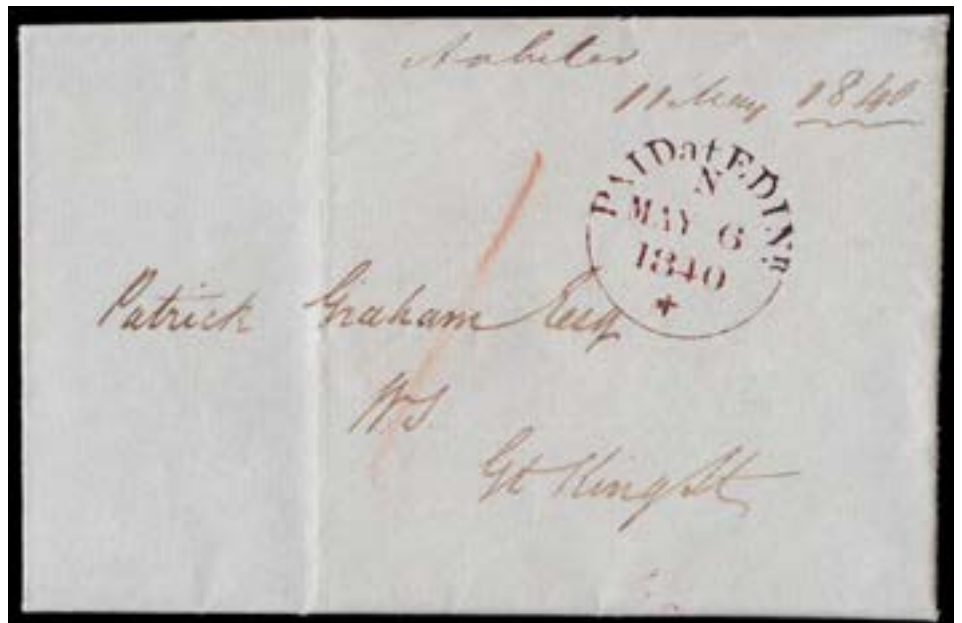 11 May 1840
PAID at EDINR
N
MAY 6
1840
Patrick Graham Esq
WS
Gt King St